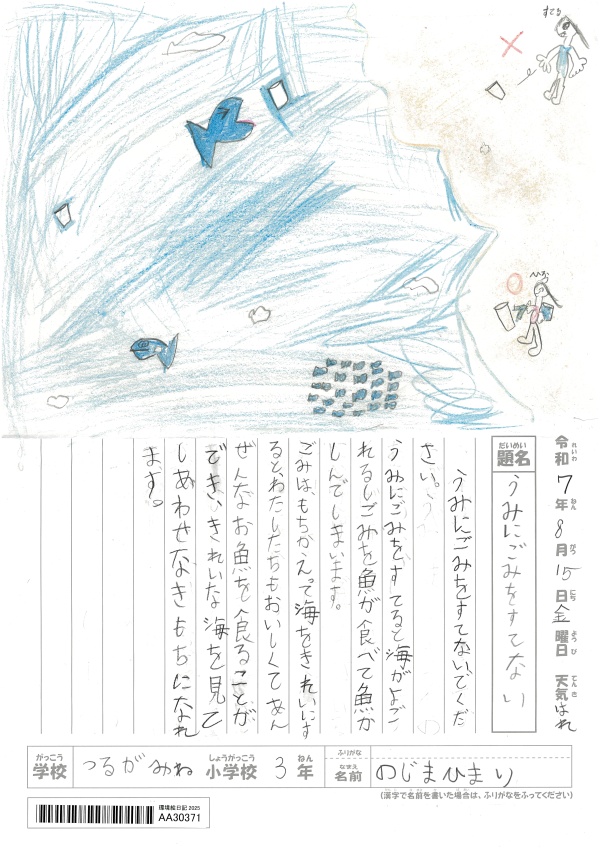 すてる
ひろう
令和7年8月15日金曜日 天気はれ
れいわ ねん がつ にち ようび てんき
だいめい
題名 うみにごみをすてない
うみにごみをすてないでくだ
さい。
うみにごみをすてると海がよご
れるしごみを魚が食べて魚が
しんでしまいます。
ごみは、もちかえって海をきれいにす
るとわたしたちもおいしくてあん
ぜんなお魚を食ることが
でき、きれいな海を見て
しあわせなきもちになれ
ます。
がっこう しょうがっこう ねん ふりがな
学校 つるがみね 小学校 3年
なまえ
名前 のじまひまり
(漢字で名前を書いた場合は、ふりがなをふってください)
環境絵日記 2025
AA30371